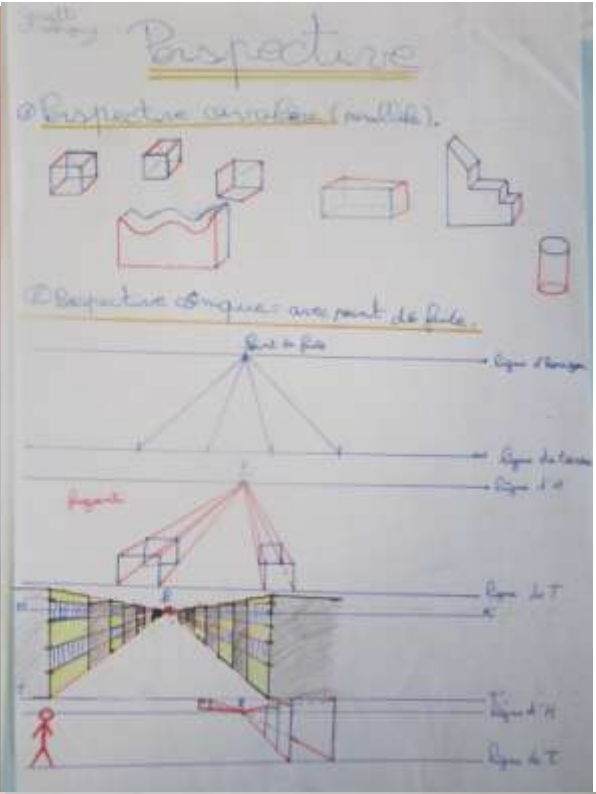 Perspective
① Perspective cavalière (parallèle).
② Perspective cônique : avec point de fuite.
Point de fuite
Ligne d'horizon
Ligne de terre
F
Ligne d'H
fuyant
Ligne de T
F
H
H
T
T
F
Ligne d'H
Ligne de T